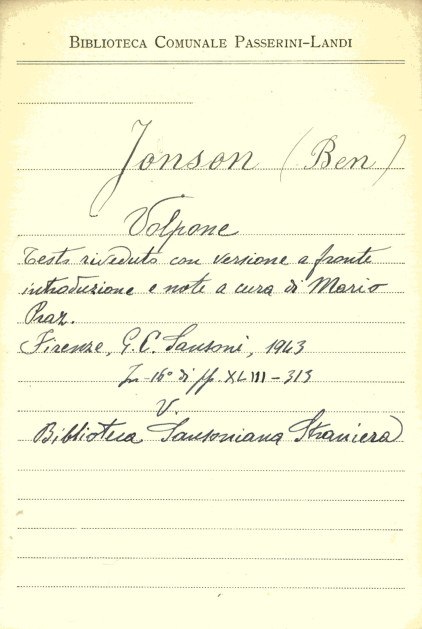 BIBLIOTECA COMUNALE PASSERINI-LANDI
Jonson (Ben)
Volpone
Testo riveduto con versione a fronte
introduzione e note a cura di Mario
Praz.
Firenze, G. C. Sansoni, 1943
In-16° di pp. XLIII-313
V.
Biblioteca Sansoniana Straniera